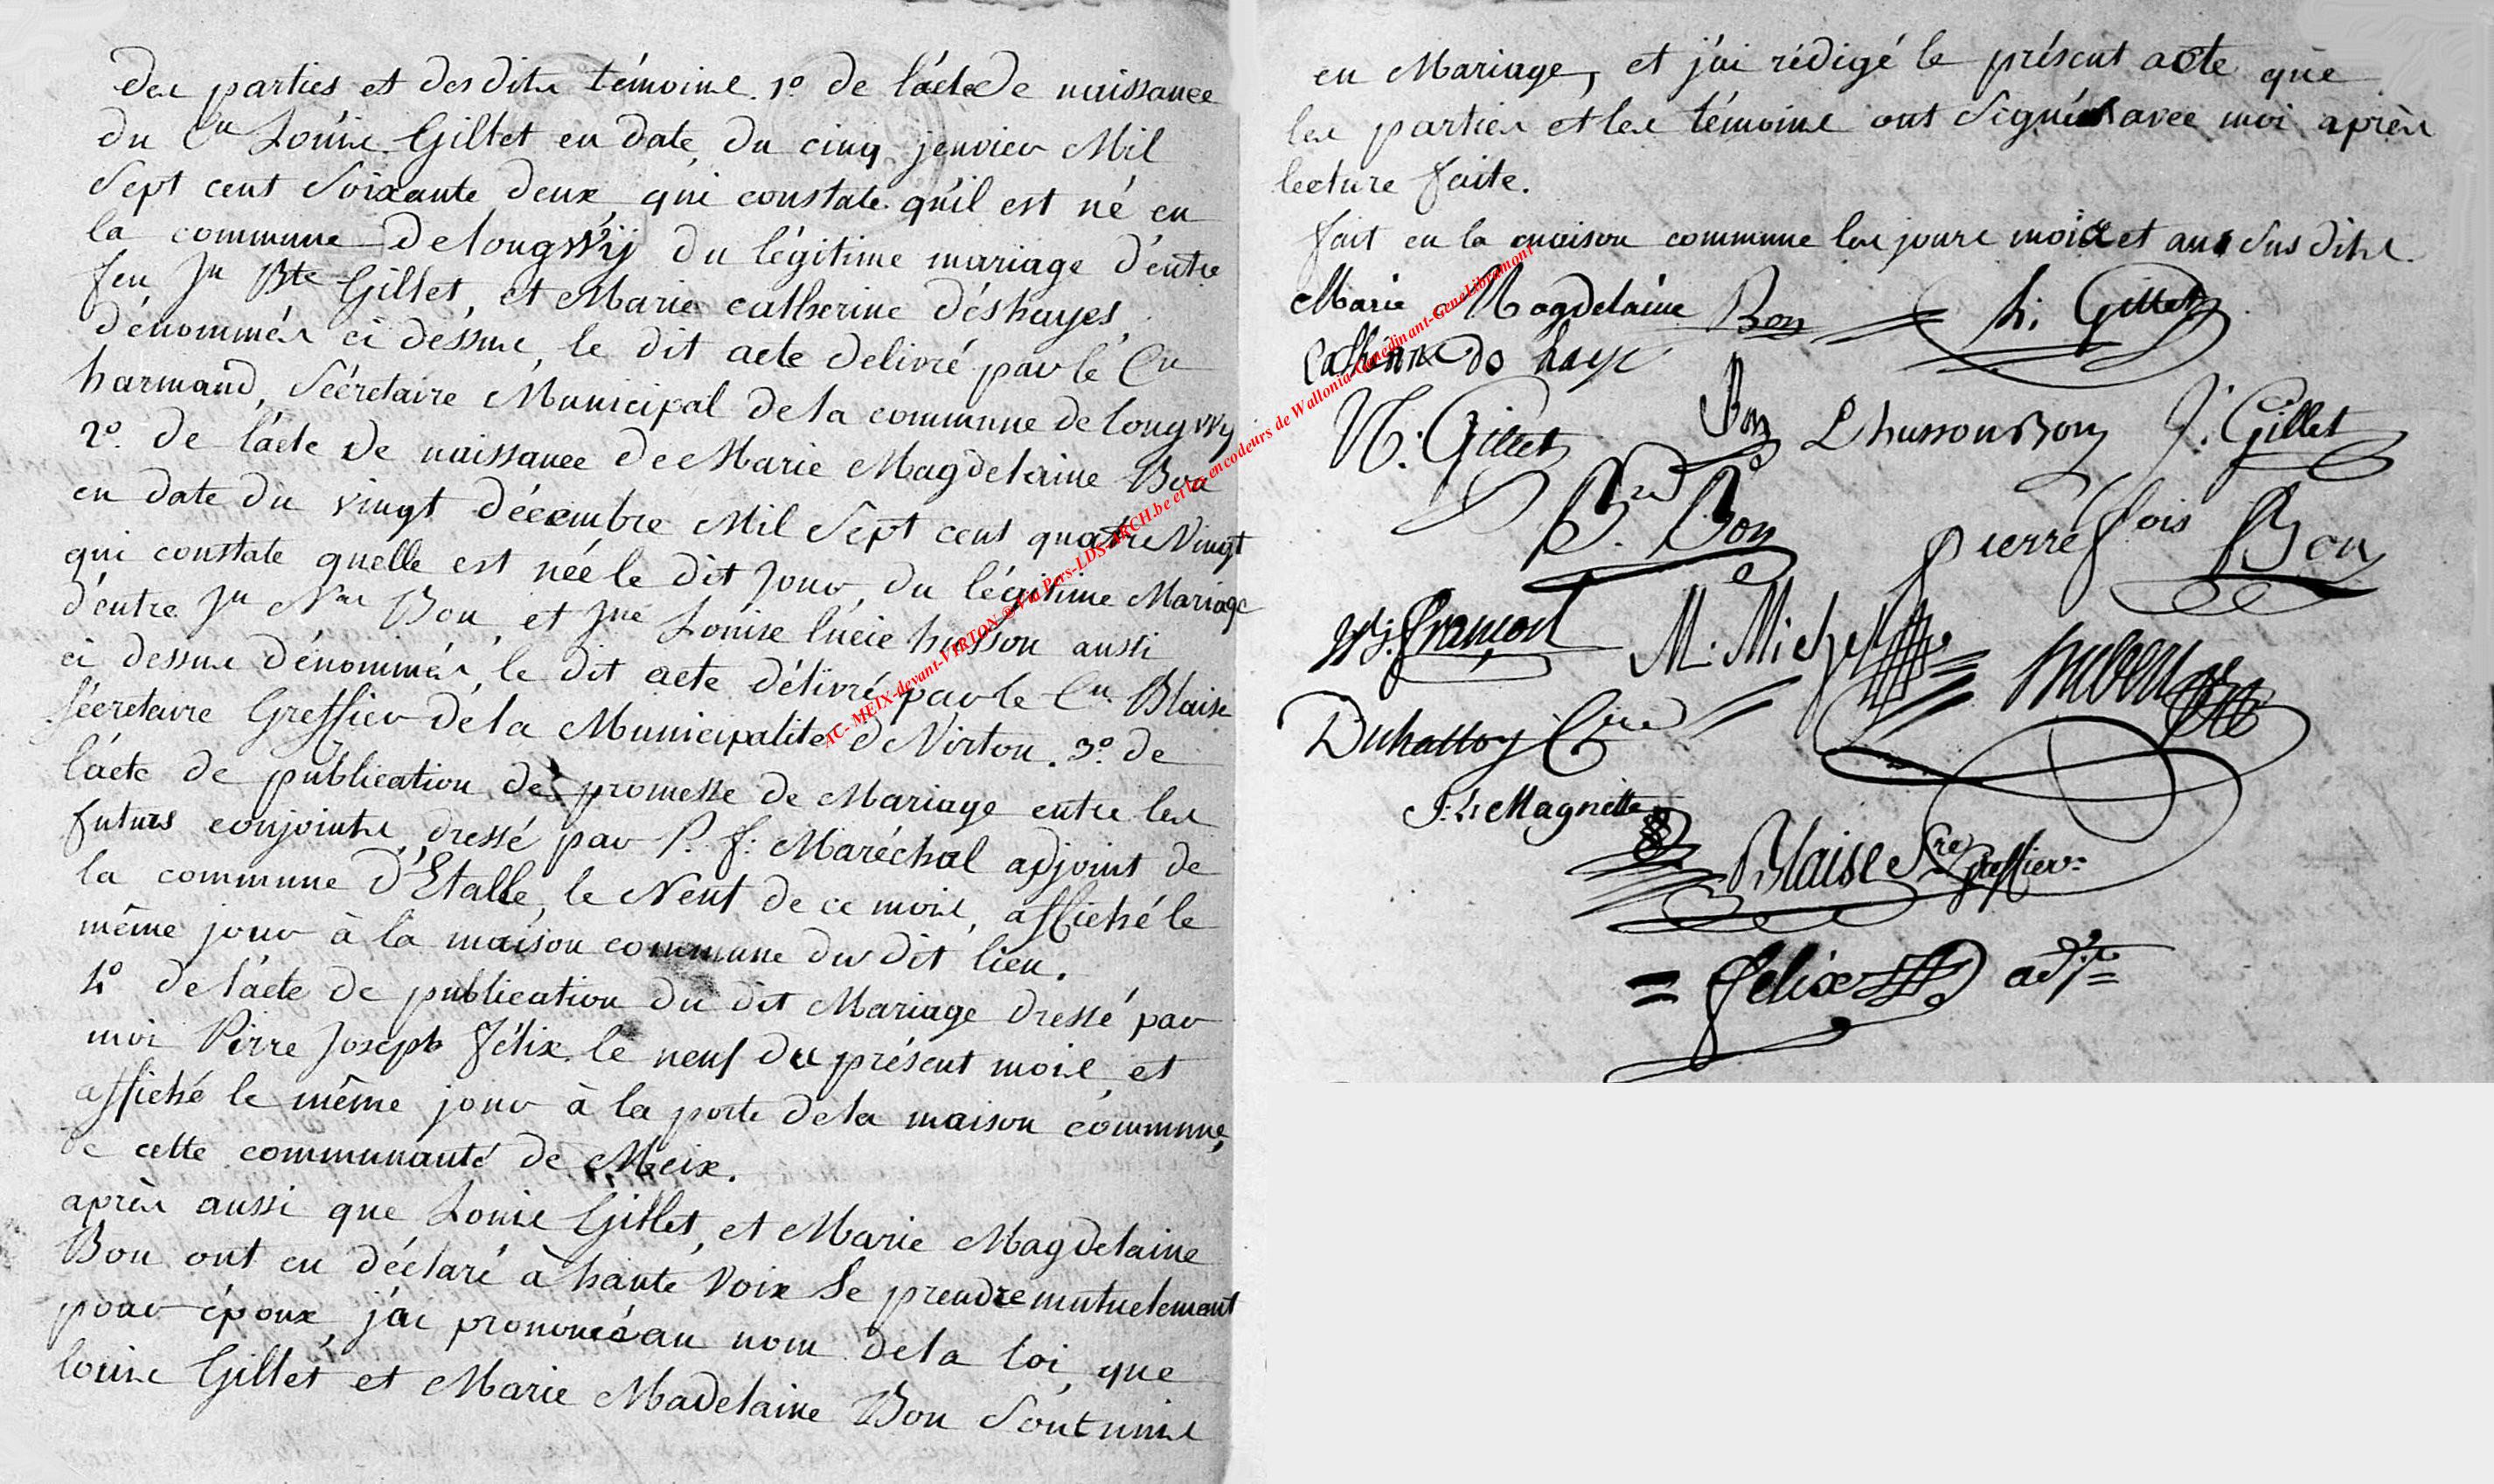 des parties et des dits témoins. 1° de l'acte de naissance
du Cn Louis Gillet en date du cinq jenvier Mil
Sept cent Soixante deux, qui constate qu'il est né en
la commune de longwij du légitime mariage d'entre
feu Jn Bte Gillet, et Marie catherine déshayes,
dénommés ci déssus, le dit acte delivré par le Cn
harmand, Sécretaire Municipal de la commune de longwy
2° de l'acte de naissance de Marie Magdelaine Bon
en date du vingt décembre Mil Sept cent quatre Vingt
qui constate quelle est née le dit Jour, du légitime Mariage
d'entre Jn Nas Bon, et Jne Louise lucie husson aussi
ci dessus dénommés, le dit acte délivré par le Cn Blaise
Sécretaire Greffier de la Municipalité d Virton. 3° de
l'acte de publication de promesse de Mariage entre les
futurs conjoints, dressé par P. f: Maréchal adjoint de
la commune d'Etalle, le Neuf de ce mois, affiché le
même jour à la maison commune du dit lieu.
4° de l'acte de publication du dit Mariage dressé par
moi Pirre Joseph félix le neuf du présent mois et
affiché le même jour à la porte de la maison commune,
de cette communauté de Meix.
après aussi que Louis Gillet, et Marie Magdelaine
Bon ont eu déclaré à haute Voix Se prendre mutuelement
pour époux, j'ai prononcé au nom de la loi, que
louis Gillet et Marie Madelaine Bon Sont unis
en Mariage, et j'ai rédigé le présent acte que
les parties et les témoins ont Signés avec moi après
lecture faite.
fait en la maison commune les jours mois et ans Susdits.
Marie Magdelaine Bon L: Gillet
Catherinne des haye
N: Gillet Bon L hussonBon J: Gillet
B.rd Bon pierre fois Bon
françois M: Michel hubert
Duhattoy
J: L: Magnette
Blaise Sre greffier
félix adjt
AC-MEIX-devant-VIRTON ® Via Pers-LDS-ARCH.be et les encodeurs de Wallonia-Genedinant-GeneLibramont